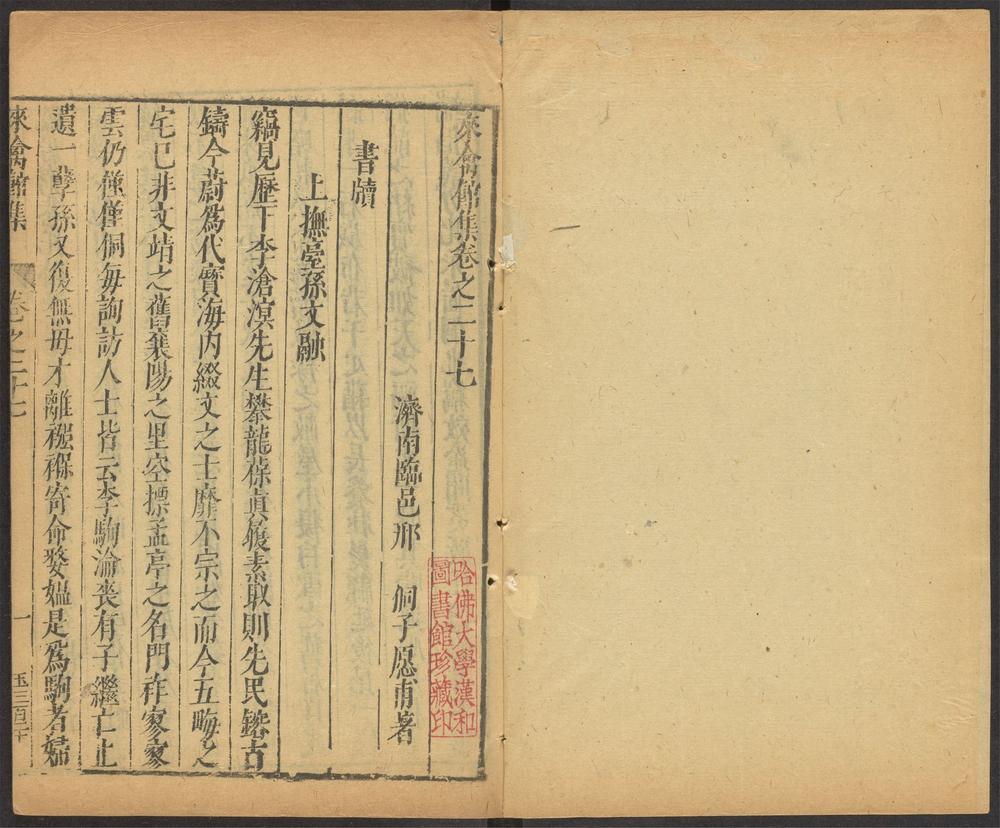 來禽館集卷之二十七
濟南臨邑邢侗子愿甫著
哈佛大學漢和
圖書館珍藏印
書牘
上撫臺孫文融
竊見歷下李滄溟先生攀龍葆眞履素取則先民鎔古
鑄今蔚爲代寶海内綴文之士靡不宗之而今五畮之
宅已非文靖之舊襄陽之里空摽孟亭之名門祚寥寥
雲仍僅僅侗每詢訪人士皆云李駒淪喪有子繼亡止
遺一孽孫又復無毋才離襁褓寄命嫠媼是爲駒者婦
來禽館集
卷之二十七
一